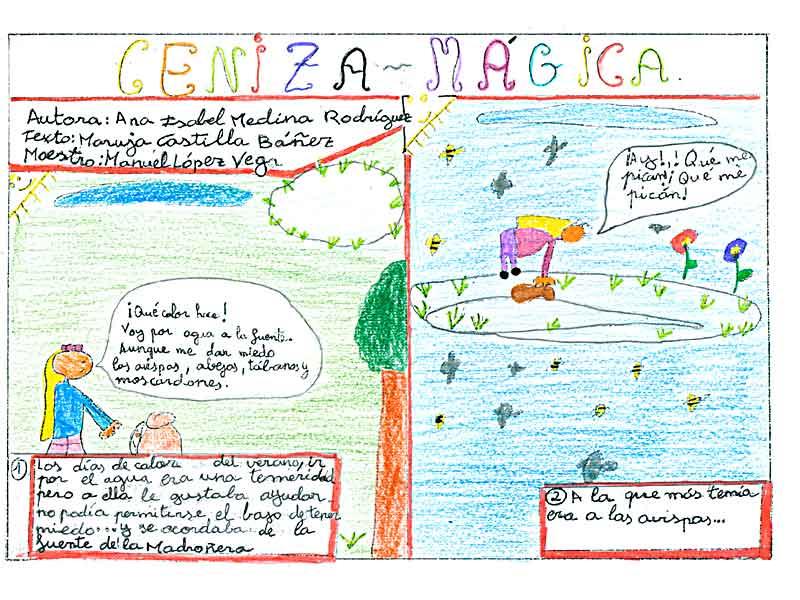 CENIZA - MÁGICA.
Autora: Ana Isabel Medina Rodríguez
Texto: Maruja Castilla Báñez
Maestro: Manuel López Vega
¡Qué calor hace!
Voy por agua a la fuente.
Aunque me dan miedo
las avispas, abejas, tábanos y
moscardones.
① Los días de calor del verano, ir
por el agua era una temeridad
pero a ella le gustaba ayudar
no podía permitirse el lujo de tener
miedo... y se acordaba de la
fuente de la Madroñera
¡Ay!, ¡Qué me
pican! ¡Qué me
picán!
② A la que más temía
era a las avispas...